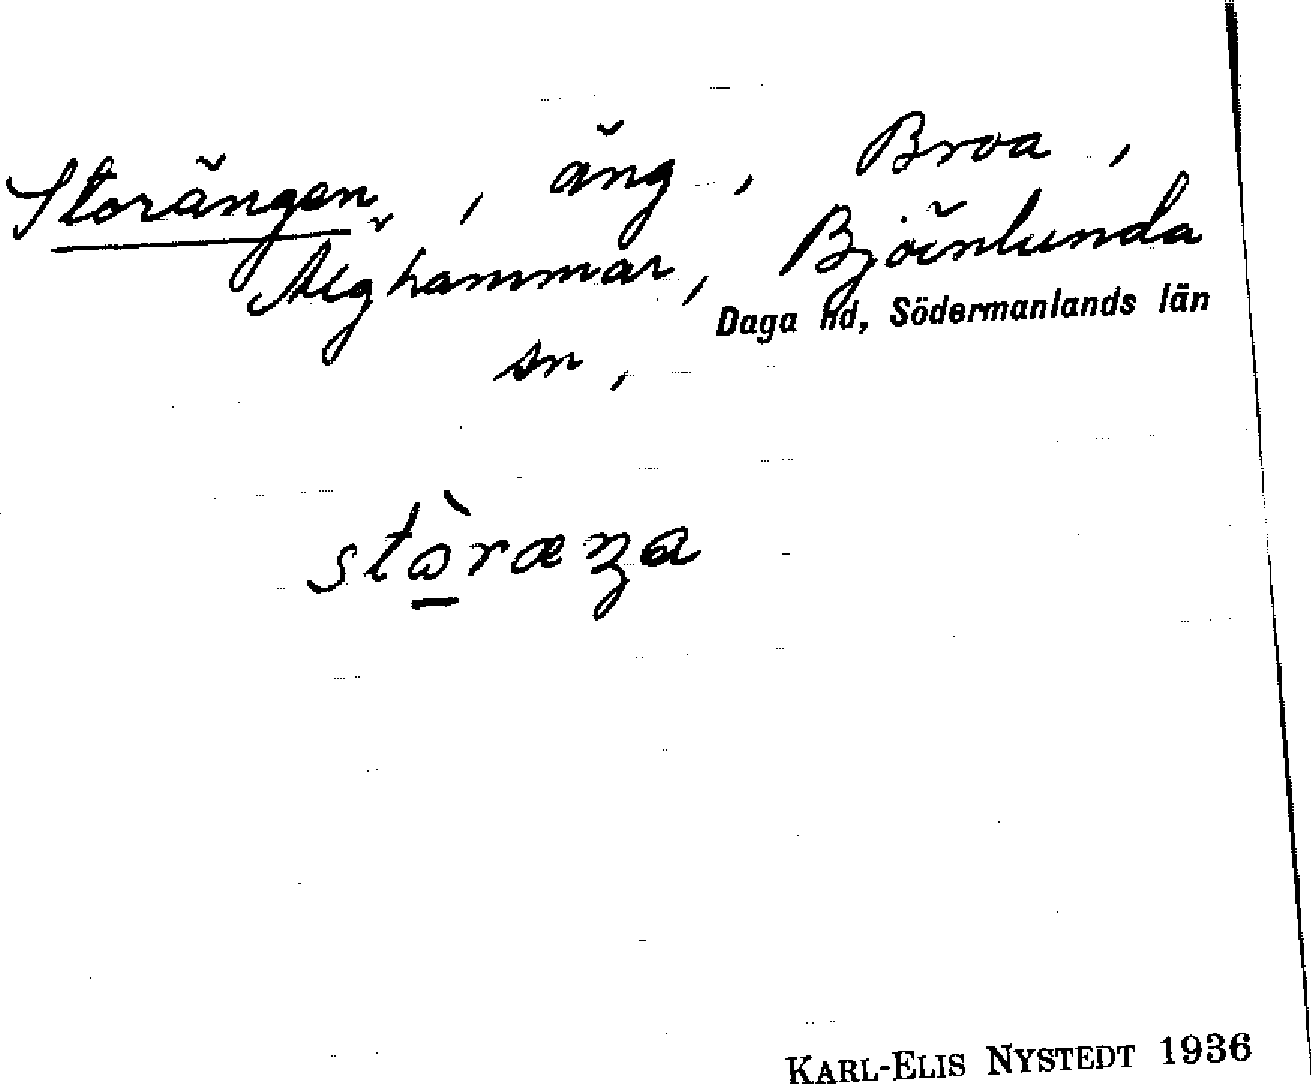 Storängen, äng, Broa,
Älghammar, Björnlunda
Daga hd, Södermanlands län
sn,
stòræŋa
KARL-ELIS NYSTEDT 1936